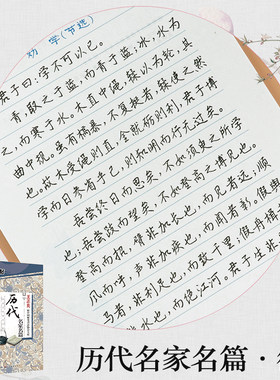 劝学(节选)
君子曰:学不可以已。
青,取之于蓝,而青于蓝;冰,水为
之,而寒于水。木直中绳,輮以为轮,其
曲中规。虽有槁暴,不复挺者,輮使之然
也。故木受绳则直,金就砺则利,君子博
学而日参省乎己,则知明而行无过矣。
吾尝终日而思矣,不如须臾之所学
也;吾尝跂而望矣,不如登高之博见也。
登高而招,臂非加长也,而见者远;顺
风而呼,声非加疾也,而闻者彰。假舆
马者,非利足也,而致千里;假舟楫
水也,而绝江河。君子生非
历代
历代名家名篇·